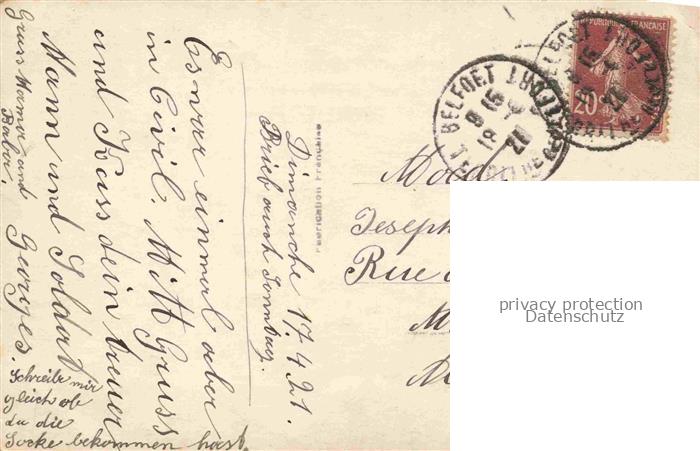 Dimanche 17.4.21.
Brief auch Sonntag.
Es war einmal aber
in Civil. Mitt Gruss
und Kuss dein treuer
Mann und Soldat
Georges
Gruss Mama und
Schreibe mir
gleich ob
du die
Socke bekommen hast.
Fabrication Française
BELFORT
20
Joseph
Rue
privacy protection
Datenschutz